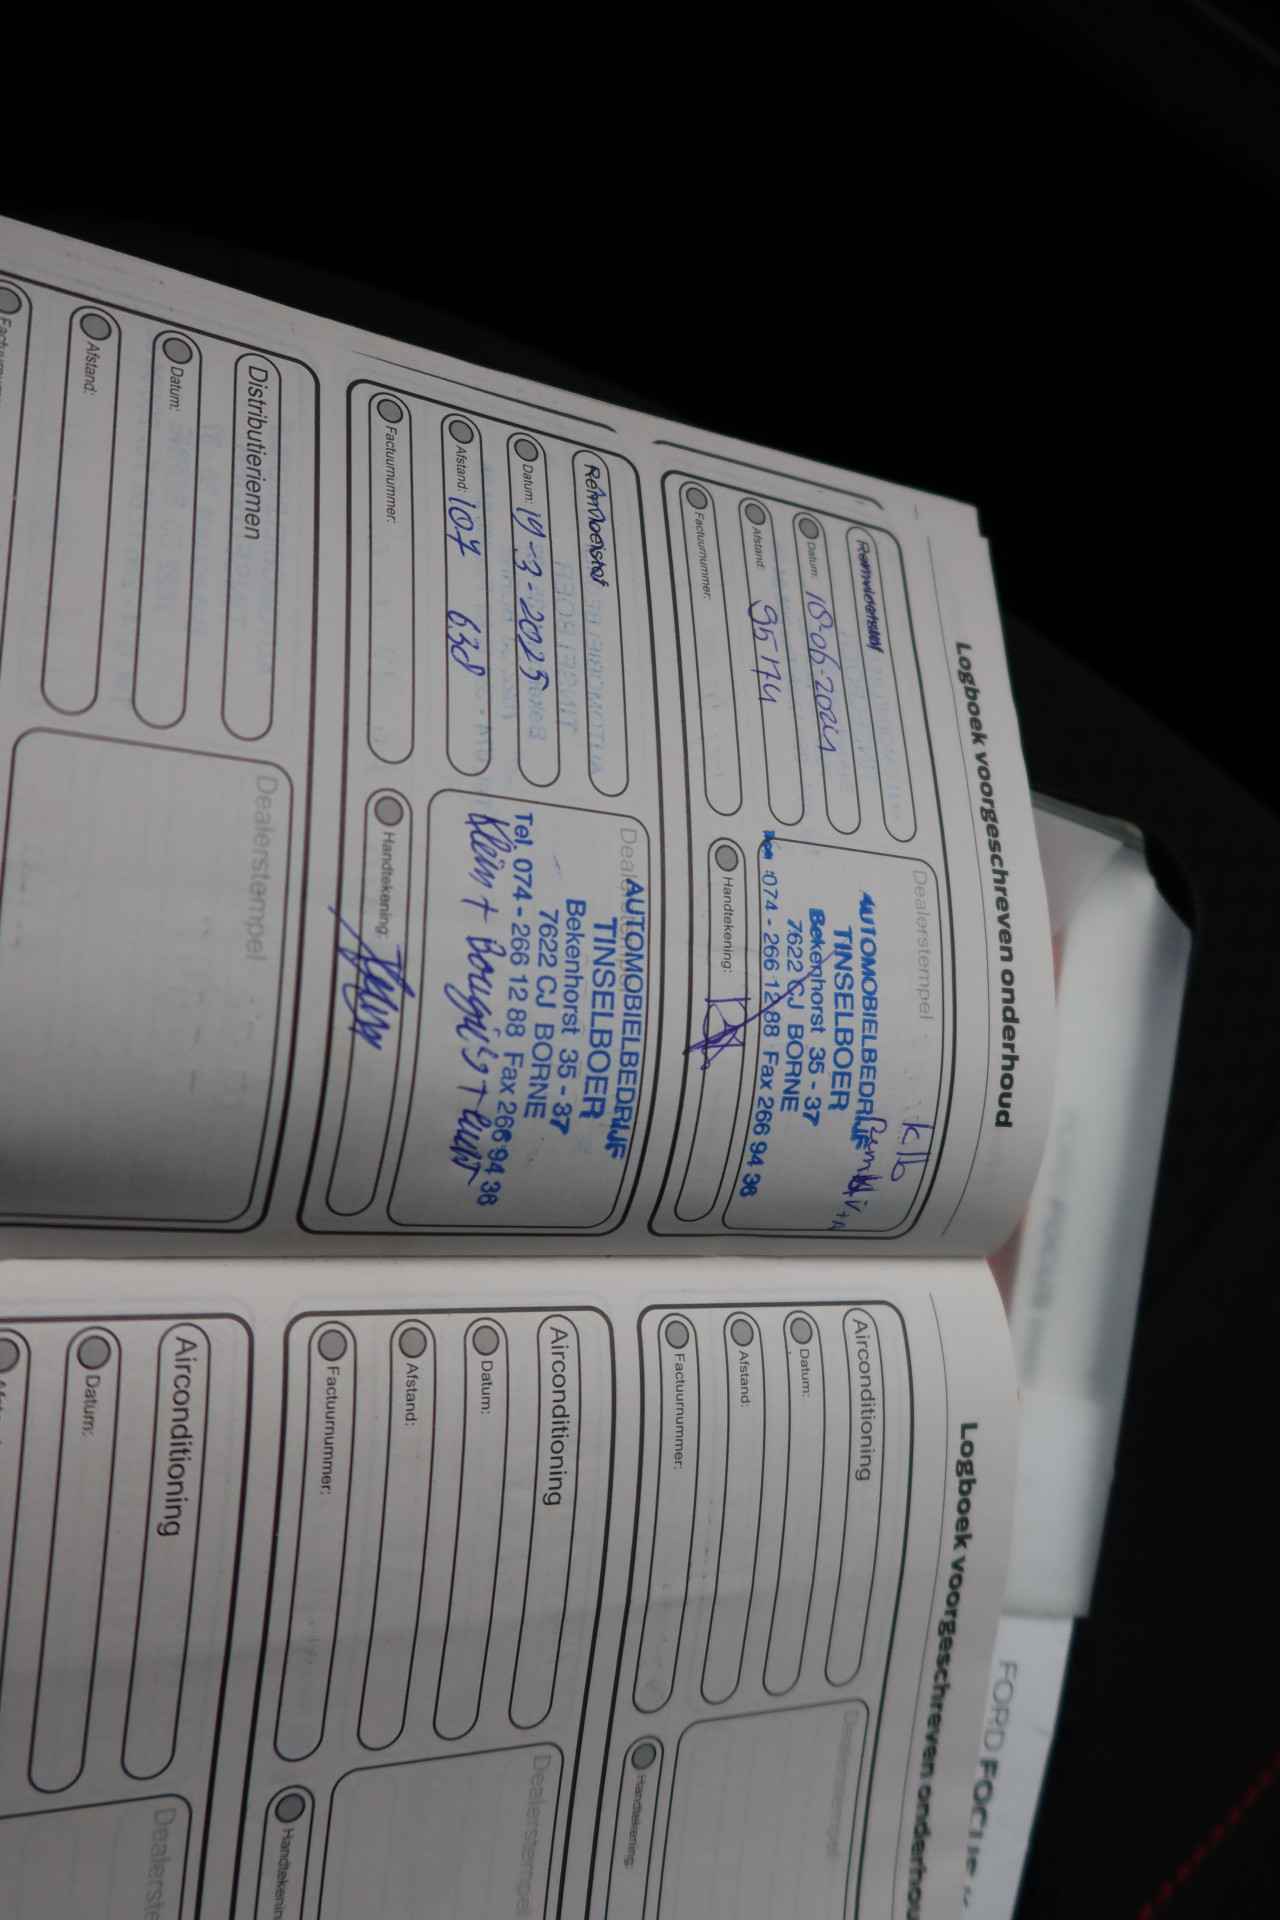 Logboek voorgeschreven onderhoud
Remvloeistof
Datum: 18-06-2024
Afstand: 95174
Factuurnummer:
Dealerstempel
klb
AUTOMOBIELBEDRIJF
TINSELBOER
Bekenhorst 35 - 37
7622 CJ BORNE
074 - 266 12 88 Fax 266 94 36
Handtekening:
Remvloeistof
Datum: 19-3-2025
Afstand: 107 638
Factuurnummer:
Dealerstempel
AUTOMOBIELBEDRIJF
TINSELBOER
Bekenhorst 35 - 37
7622 CJ BORNE
Tel. 074 - 266 12 88 Fax 266 94 36
Klein + Bougi's +
Handtekening:
Distributieriemen
Datum:
Afstand:
Dealerstempel
Logboek voorgeschreven onderhoud
Airconditioning
Datum:
Afstand:
Factuurnummer:
Dealerstempel
Handtekening:
Airconditioning
Datum:
Afstand:
Factuurnummer:
Dealerstempel
Handtekening
Airconditioning
Datum:
FORD FOCUS
FOCUS